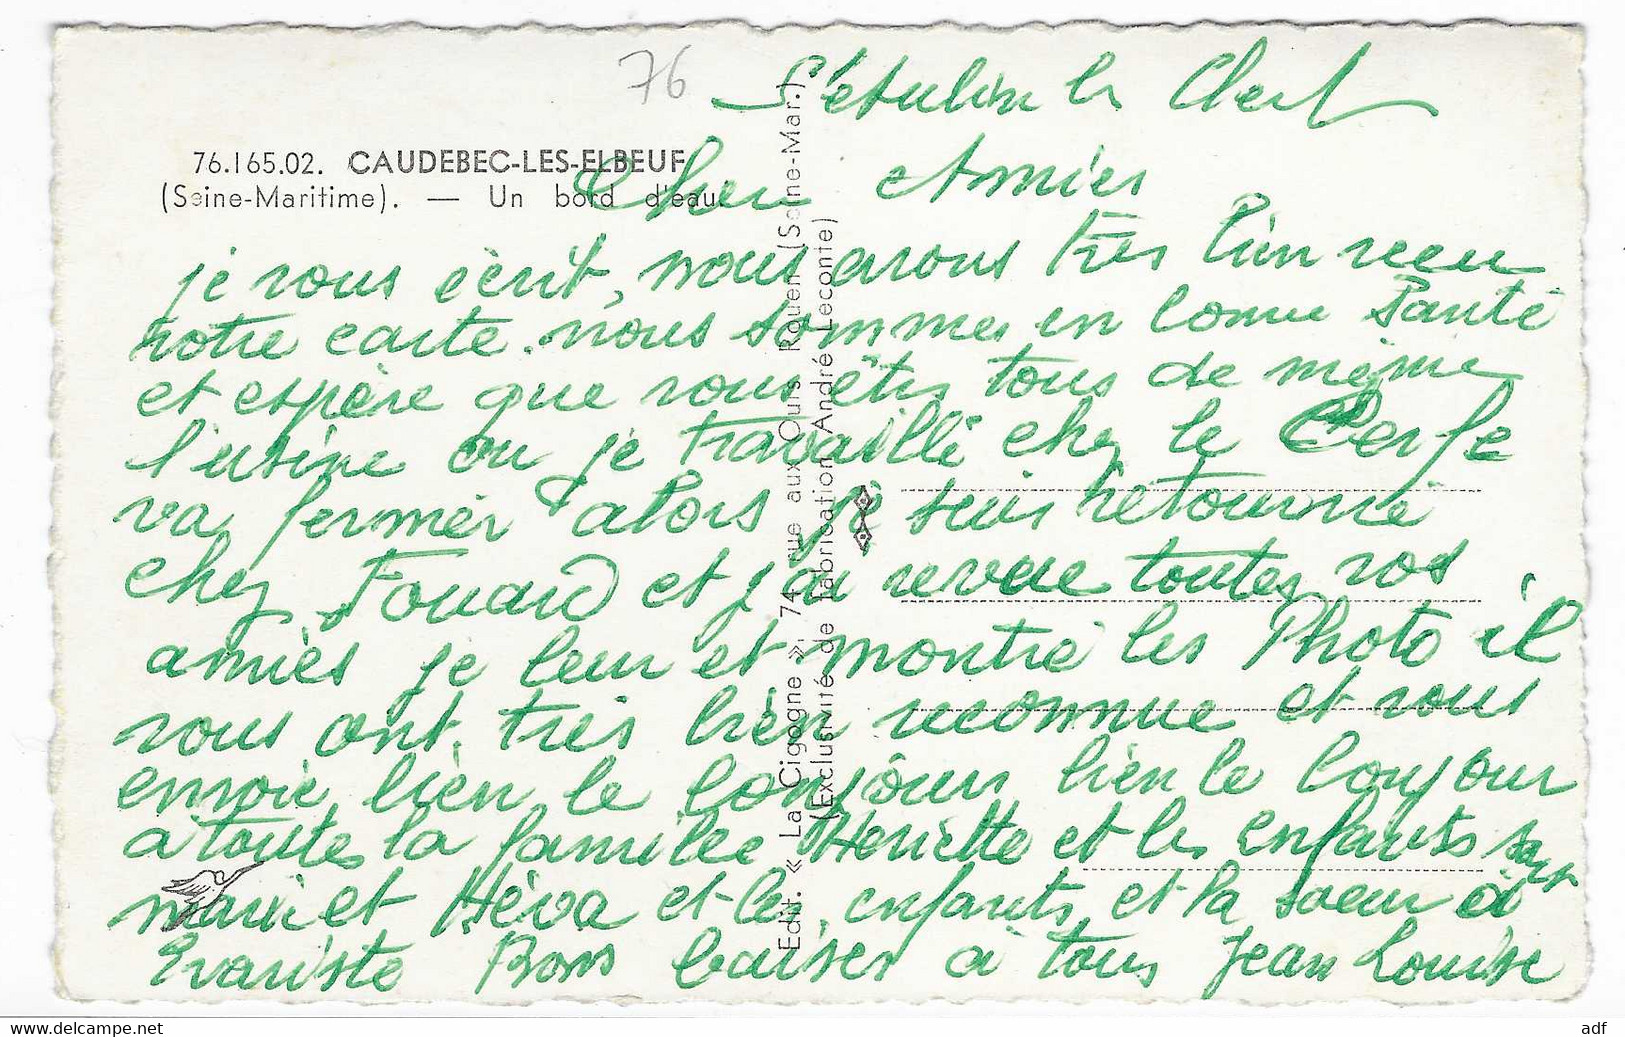 76
76.165.02. CAUDEBEC-LES-ELBEUF
(Seine-Maritime). — Un bord d'eau.
le
Cher Amies
je vous écrit, nous avons très bien recu
votre carte. nous sommes en bonne santé
et espère que vous êtes tous de même
l'usine ou je travaille chez le
va fermer alors je suis retourné
chez Fouard et j'ai revue toutes vos
amies je leur et montré les Photo il
vous ont très bien reconnue et vous
envoie bien le bonjour bien le bonjour
a toute la famille Henriette et les enfants son
mari et Héva et les enfants et la soeur a
Evariste Bons baiser a tous Jean Louise
Edit. « La Cigogne », 74, rue aux Ours, Rouen (Seine-Mar.)
(Exclusivité de fabrication André Leconte)
adf